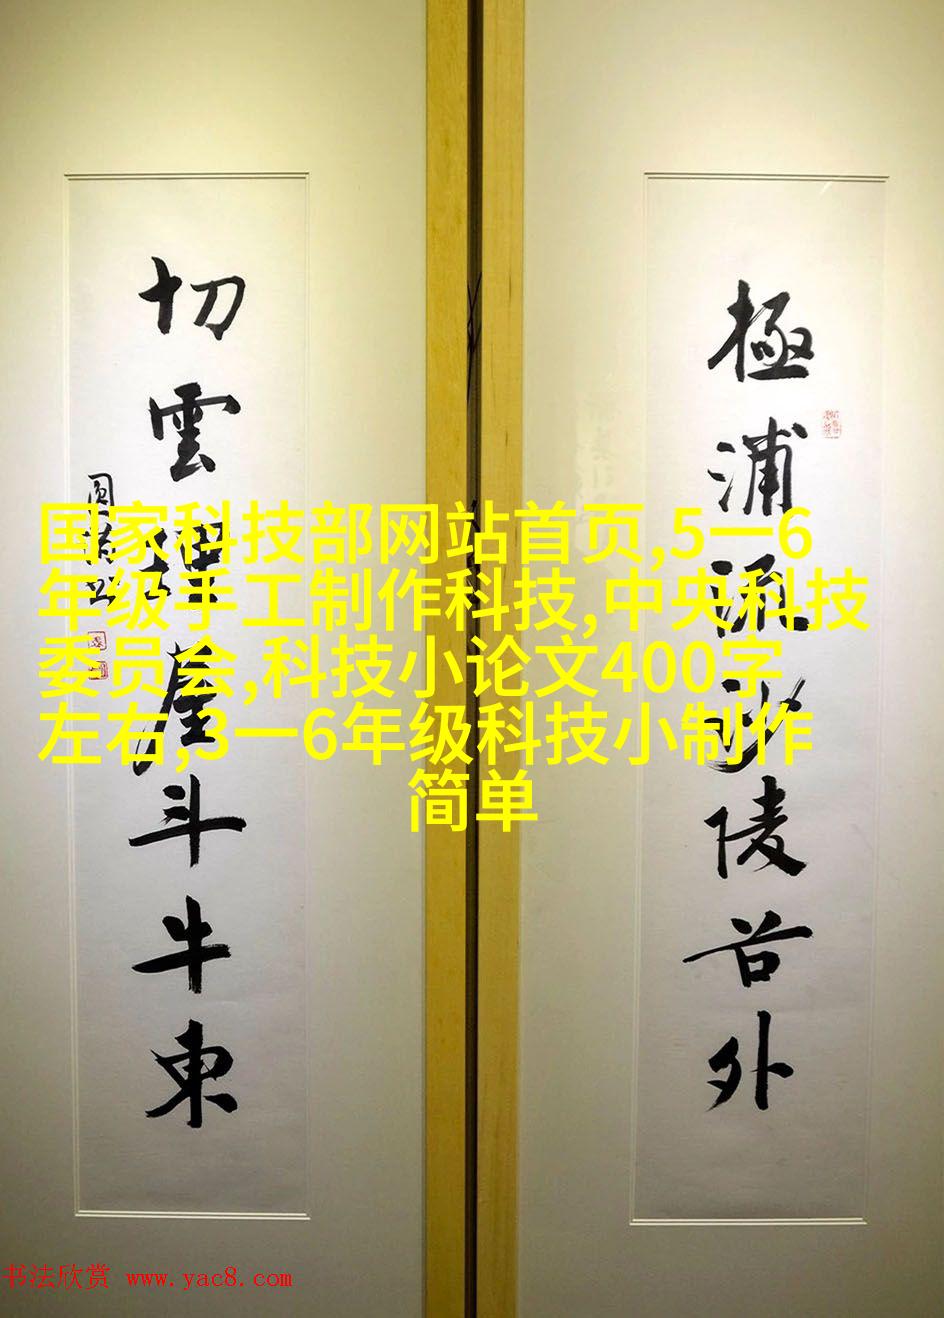 極浦沙陵谷外
切雲崖斗牛東
国家科技部网站首页,5一6
年级手工制作科技,中央科技
委员会,科技小论文400字
左右,3一6年级科技小制作
简单
书法欣赏 www.yac8.com